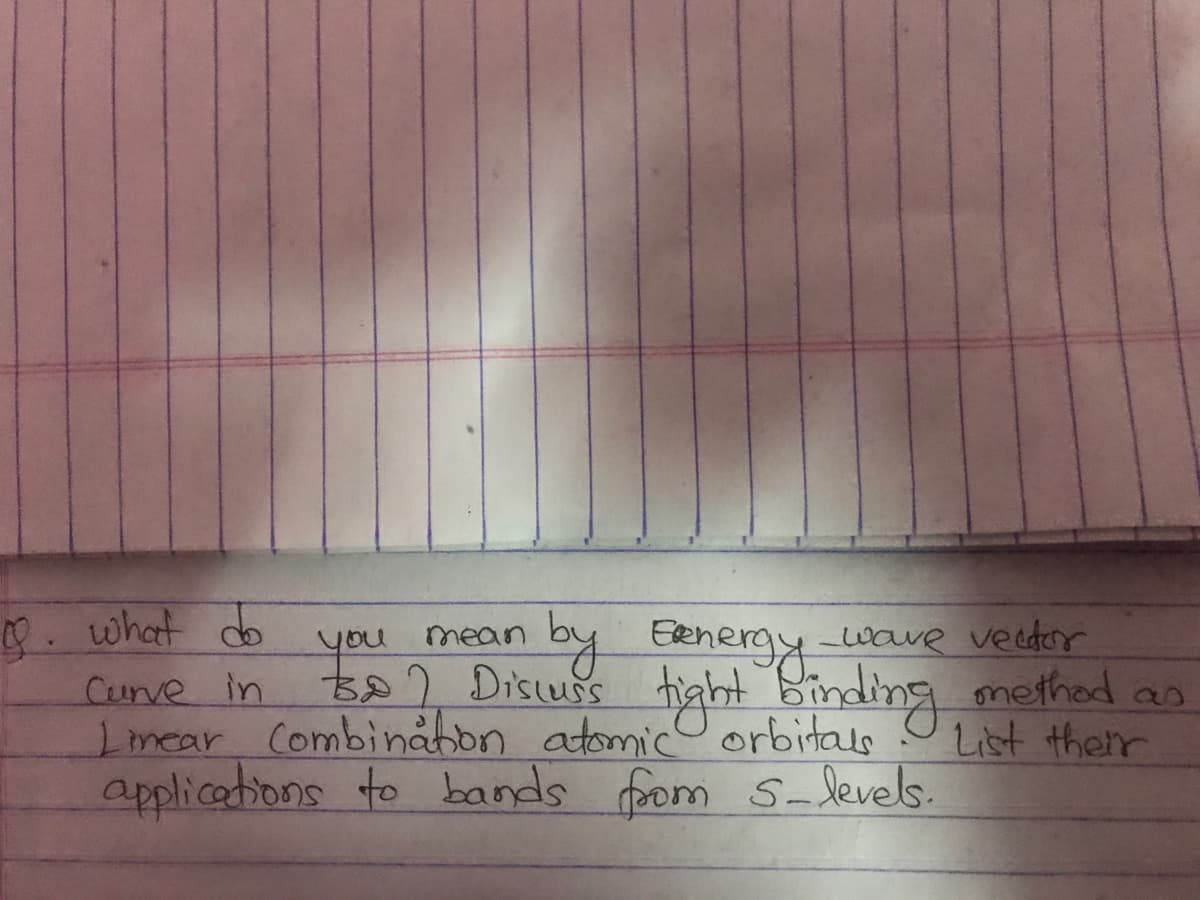 Q. what do you mean by Eenergy-wave vector
curve in ? Discuss tight Binding method as
Linear Combination atomic orbitals. List their
applications to bands from S-levels.